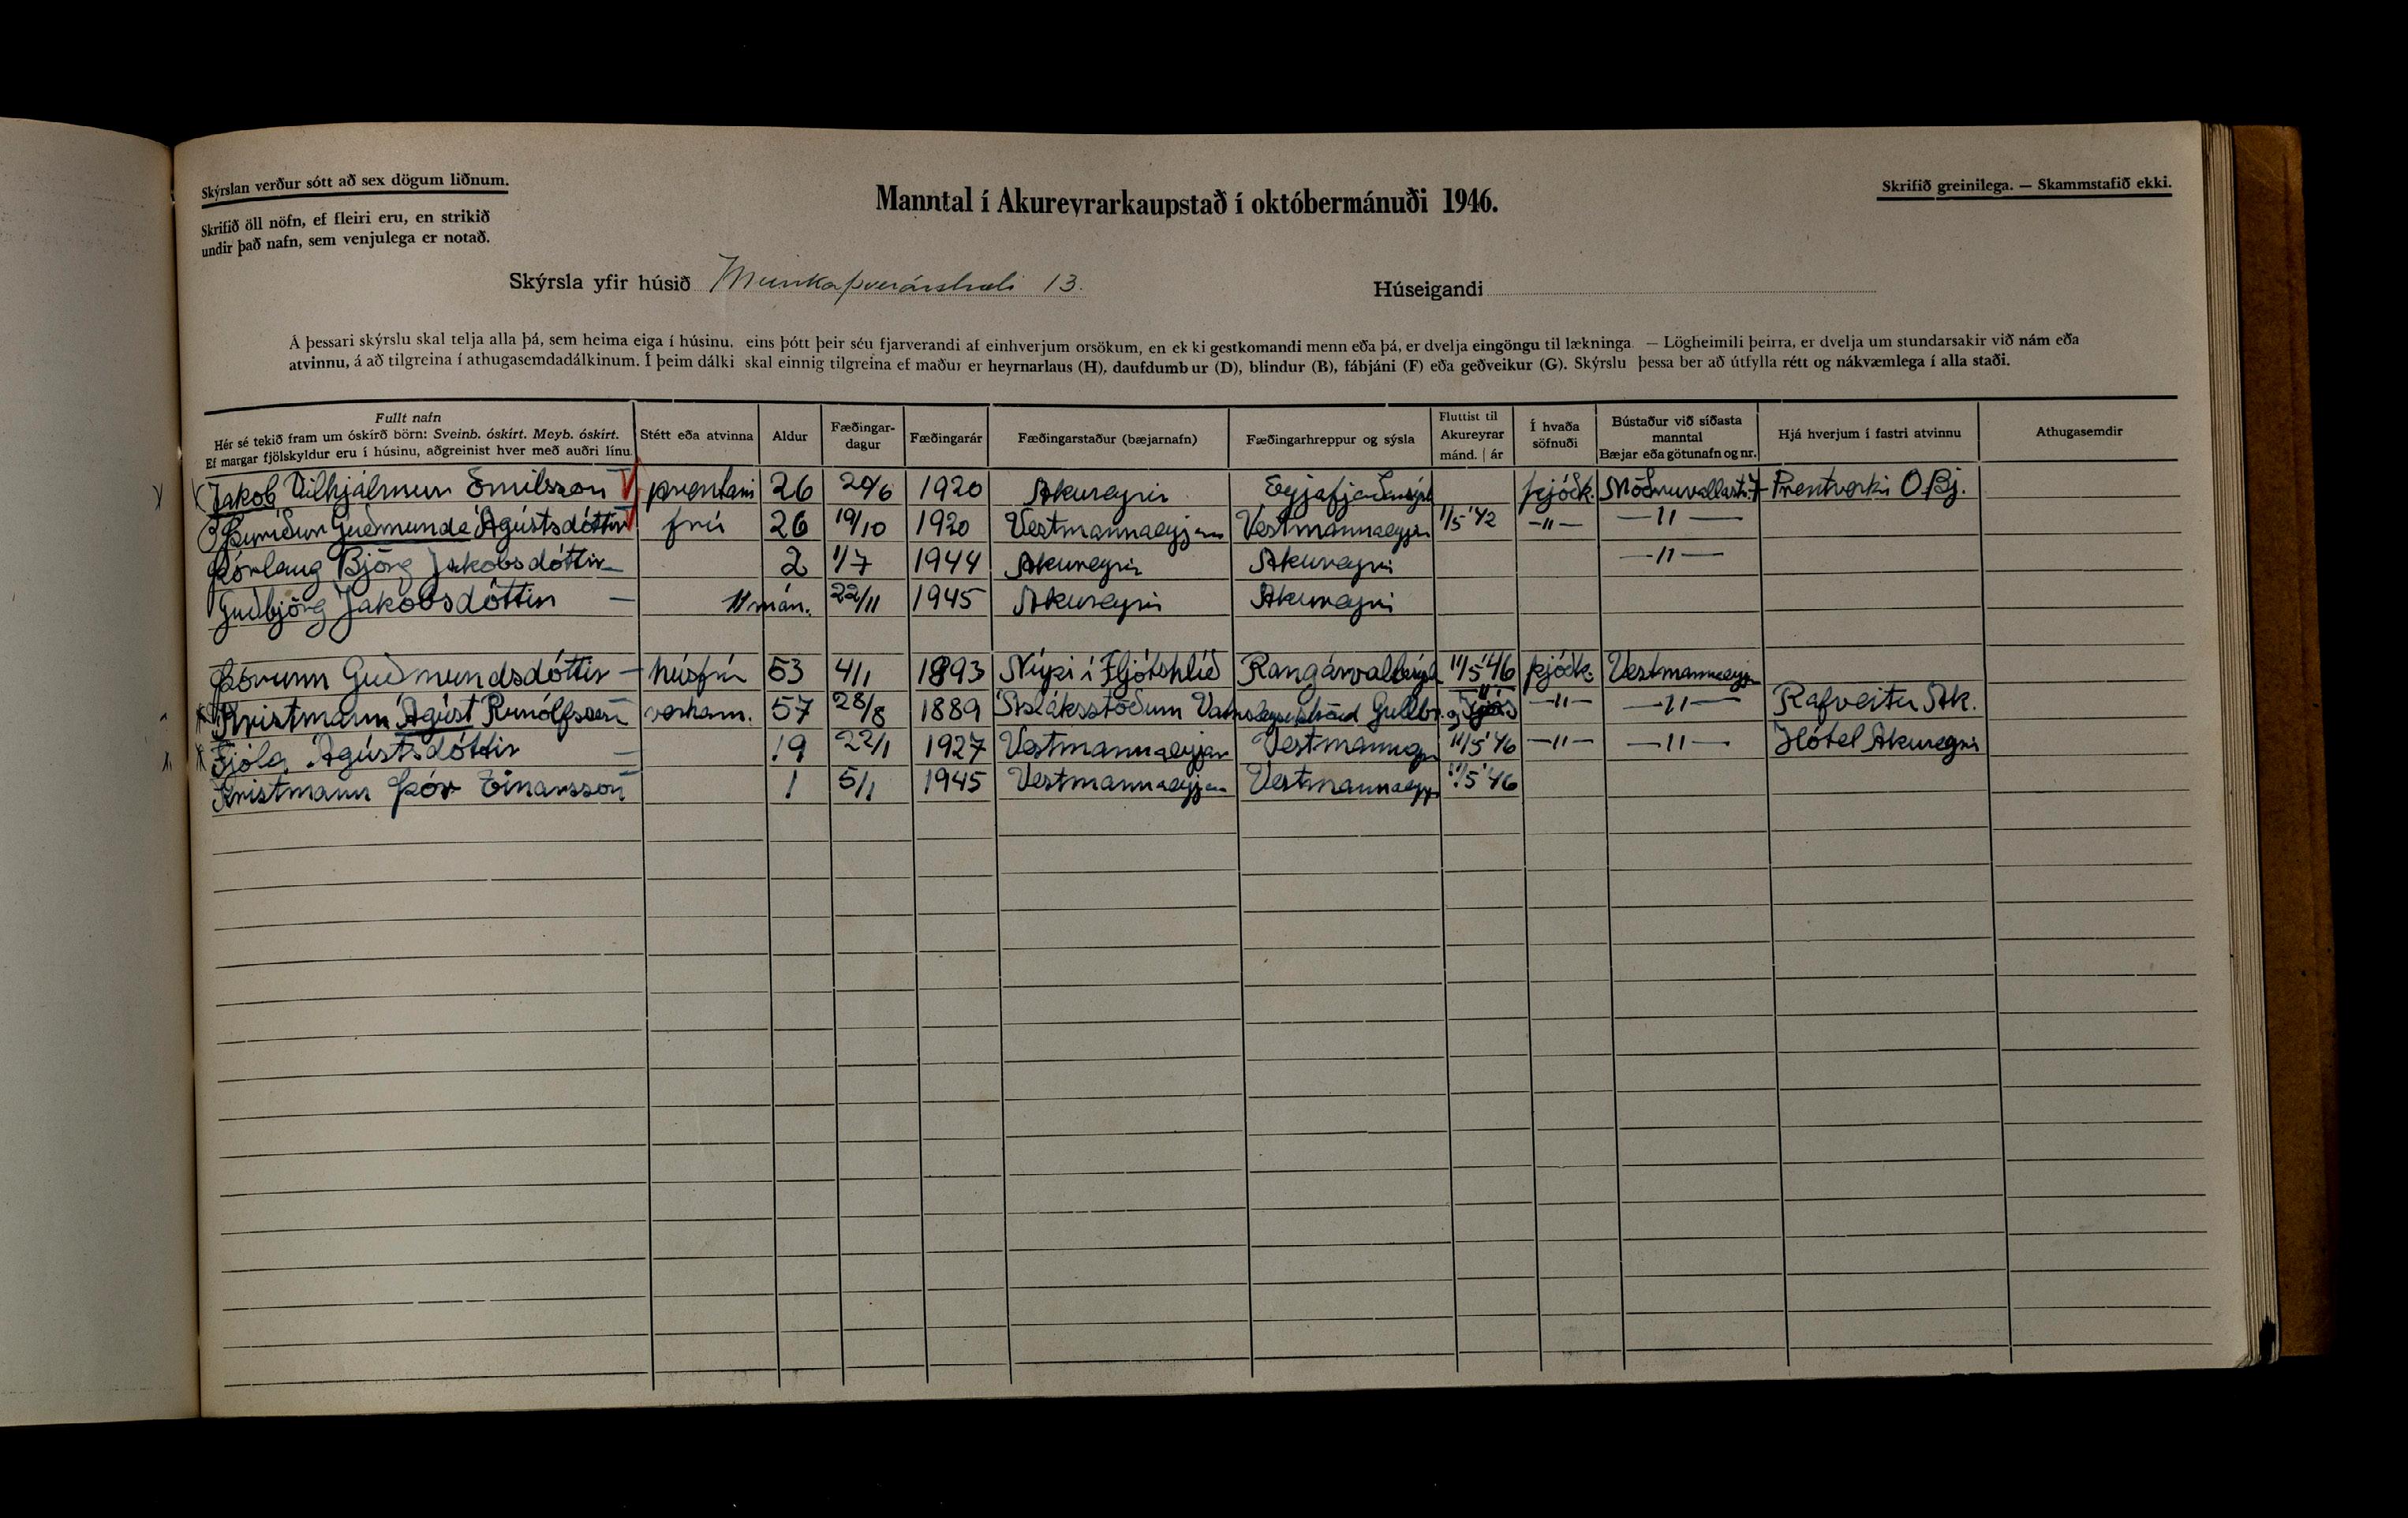 Skýrslan verður sótt að sex dögum liðnum.
Skrifið öll nöfn, ef fleiri eru, en strikið
undir það nafn, sem venjulega er notað.
Manntal í Akureyrarkaupstað í októbermánuði 1946.
Skrifið greinilega. — Skammstafið ekki.
Skýrsla yfir húsið Munkaþverárstræti 13.
Húseigandi
Á þessari skýrslu skal telja alla þá, sem heima eiga í húsinu, eins þótt þeir séu fjarverandi af einhverjum orsökum, en ekki gestkomandi menn eða þá, er dvelja eingöngu til lækninga. — Lögheimili þeirra, er dvelja um stundarsakir við nám eða
atvinnu, á að tilgreina í athugasemdadálkinum. Í þeim dálki skal einnig tilgreina ef maður er heyrnarlaus (H), daufdumbur (D), blindur (B), fábjáni (F) eða geðveikur (G). Skýrslu þessa ber að útfylla rétt og nákvæmlega í alla staði.
Fullt nafn
Hér sé tekið fram um óskírð börn: Sveinb. óskírt. Meyb. óskírt.
Ef margar fjölskyldur eru í húsinu, aðgreinist hver með auðri línu.
Stétt eða atvinna
Aldur
Fæðingar-
dagur
Fæðingarár
Fæðingarstaður (bæjarnafn)
Fæðingarhreppur og sýsla
Fluttist til
Akureyrar
mánd. | ár
Í hvaða
söfnuði
Bústaður við síðasta
manntal
Bæjar eða götunafn og nr.
Hjá hverjum í fastri atvinnu
Athugasemdir
Jakob Vilhjálmur Emilsson prentari 26 20/6 1920 Akureyri Eyjafjarðarsýsl þjóðk. Möðruvallastr. 7 Prentverki O.Bj.
Þuríður Guðmunda Ágústsdóttir frú 26 19/10 1920 Vestmannaeyjum Vestmannaeyjum 1/5 '42 —"— —"—
Þórlaug Björg Jakobsdóttir 2 1/7 1944 Akureyri Akureyri —"—
Guðbjörg Jakobsdóttir — 11 mán. 22/11 1945 Akureyri Akureyri
Þórunn Guðmundsdóttir — húsfrú 53 4/1 1893 Núpi í Fljótshlíð Rangárvallasýsl 11/5 '46 þjóðk. Vestmannaeyjum
Kristmann Ágúst Runólfsson verkam. 57 28/8 1889 Ásláksstöðum Vatnsleysuströnd Gullbr. og Kjós —"— —"— Rafveitu Ak.
Fjóla Ágústsdóttir — 19 22/1 1927 Vestmannaeyjum Vestmannaey 11/5 '46 —"— —"— Hótel Akureyri
Kristmann Þór Einarsson 1 5/1 1945 Vestmannaeyjum Vestmannaeyj 11/5 '46